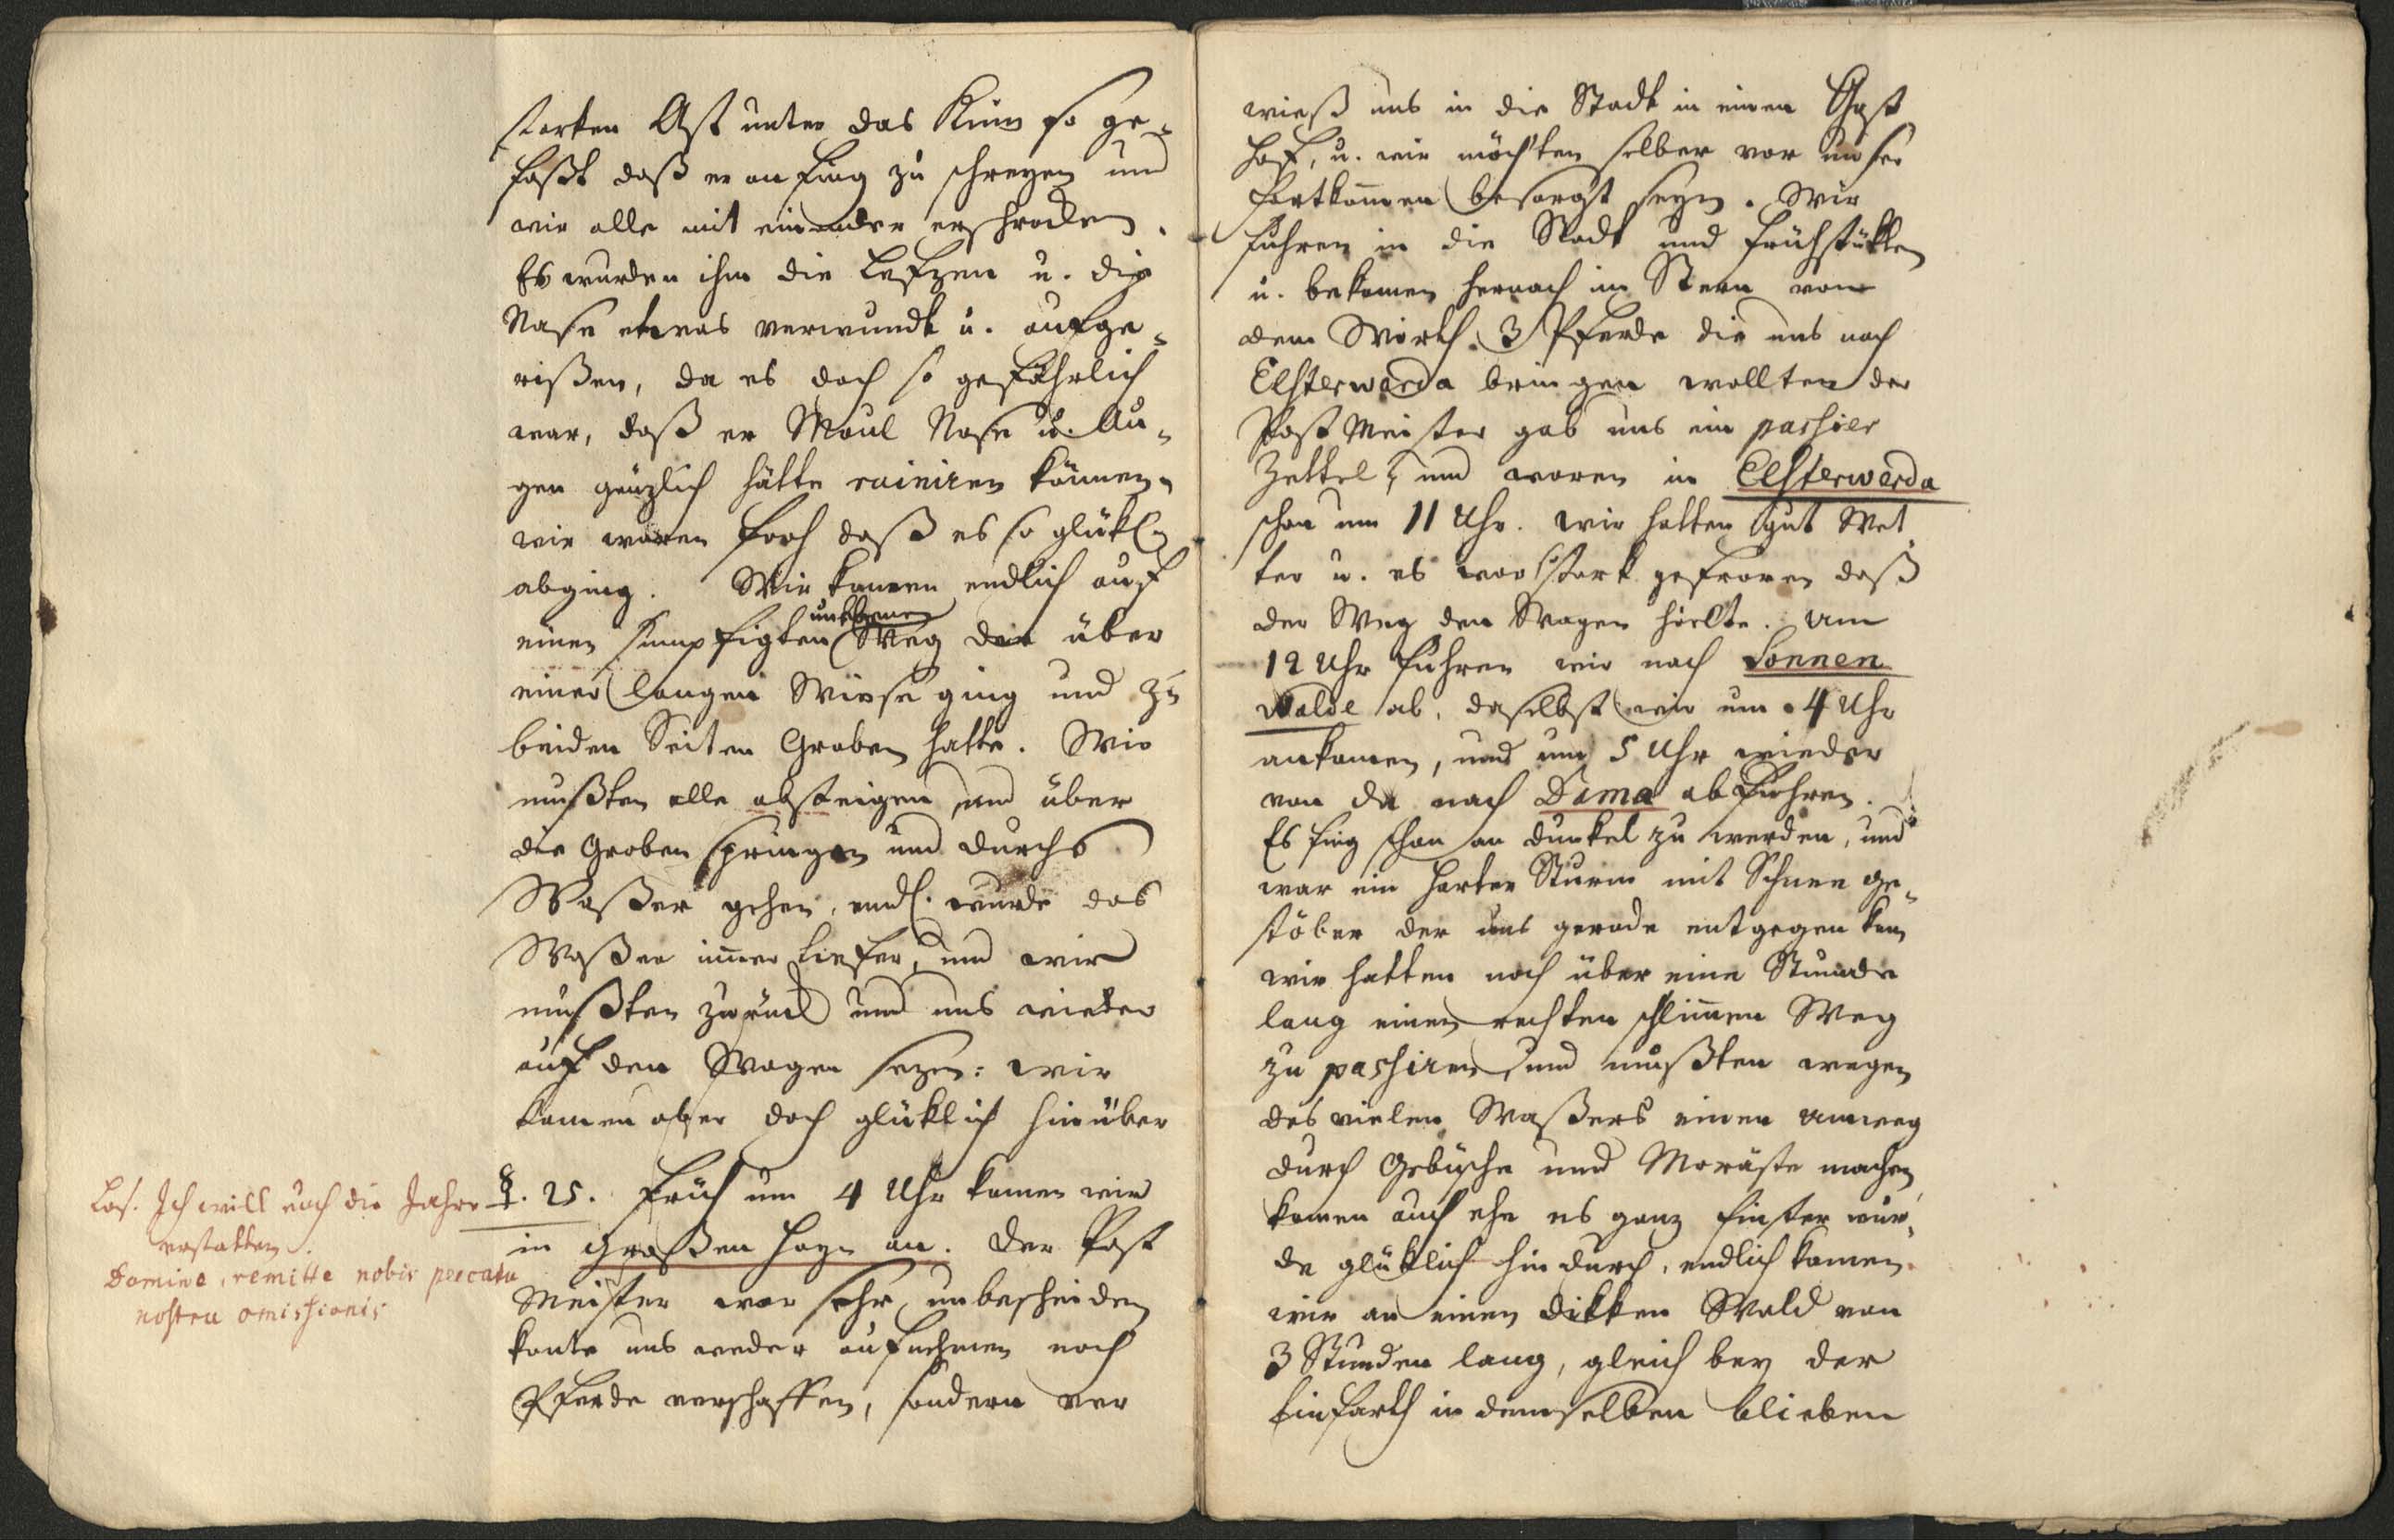 starken Ast unter das Kinn so ge-
faßt daß er anfing zu schreyen und
wir alle mit einander erschracken.
Es wurden ihm die Lefzen u. die
Nase etwas verwundt u. aufge-
rißen, da es doch so gefährlich
war, daß er Maul Nase u. Au-
gen gänzlich hätte ruiniren können.
wir waren froh daß es so glükl.
abging. Wir kamen endlich auf
einen sumpfigten Weg der über
einer langen Wiese ging und zu
beiden Seiten Graben hatte. Wir
mußten alle absteigen und über
die Graben springen und durchs
Waßer gehen, endl. wurde das
Waßer im̄er tiefer, und wir
mußten zurück und uns wieder
auf den Wagen sezen: wir
kamen aber doch glüklich hinüber
Los. Ich will euch die Jahre
erstatten.
Domine, remitte nobis peccata
nostra omissionis
♀. 25. Früh um 4 Uhr kamen wir
in Großen Hayn an. Der Post
Meister war sehr unbescheiden
konte uns weder aufnehmen noch
Pferde verschaffen, sondern ver
wieß uns in die Stadt in einen Gast
hof, u. wir möchten selber vor unser
Fortkom̄en besorgt seyn. Wir
fuhren in die Stadt und frühstükten
u. bekamen hernach im Stern von
dem Wirth 3 Pferde die uns nach
Elsterwerda bringen wollten der
Post Meister gab uns ein passier
Zettel, und waren in Elsterwerda
schon um 11 Uhr. wir hatten gut Wet
ter u. es war so stark gefroren daß
der Weg den Wagen hielte. Um
12 Uhr fuhren wir nach Sonnen
Walde ab, daselbst wir um 4 Uhr
ankamen, und um 5 Uhr wieder
von da nach Dama abfuhren.
Es fing schon an dunkel zu werden, und
war ein harter Sturm mit Schnee ge-
stöber der uns gerade entgegen kam
wir hatten noch über eine Stunde
lang einen rechten schlim̄en Weg
zu passiren, und mußten wegen
des vielen Waßers einen umweg
durch Gebüsche und Moräste machen
kamen auch ehe es ganz finster wur-
de glüklich hindurch, endlich kamen
wir an einen dikken Wald von
3 Stunden lang, gleich bey der
Einfarth in demselben blieben